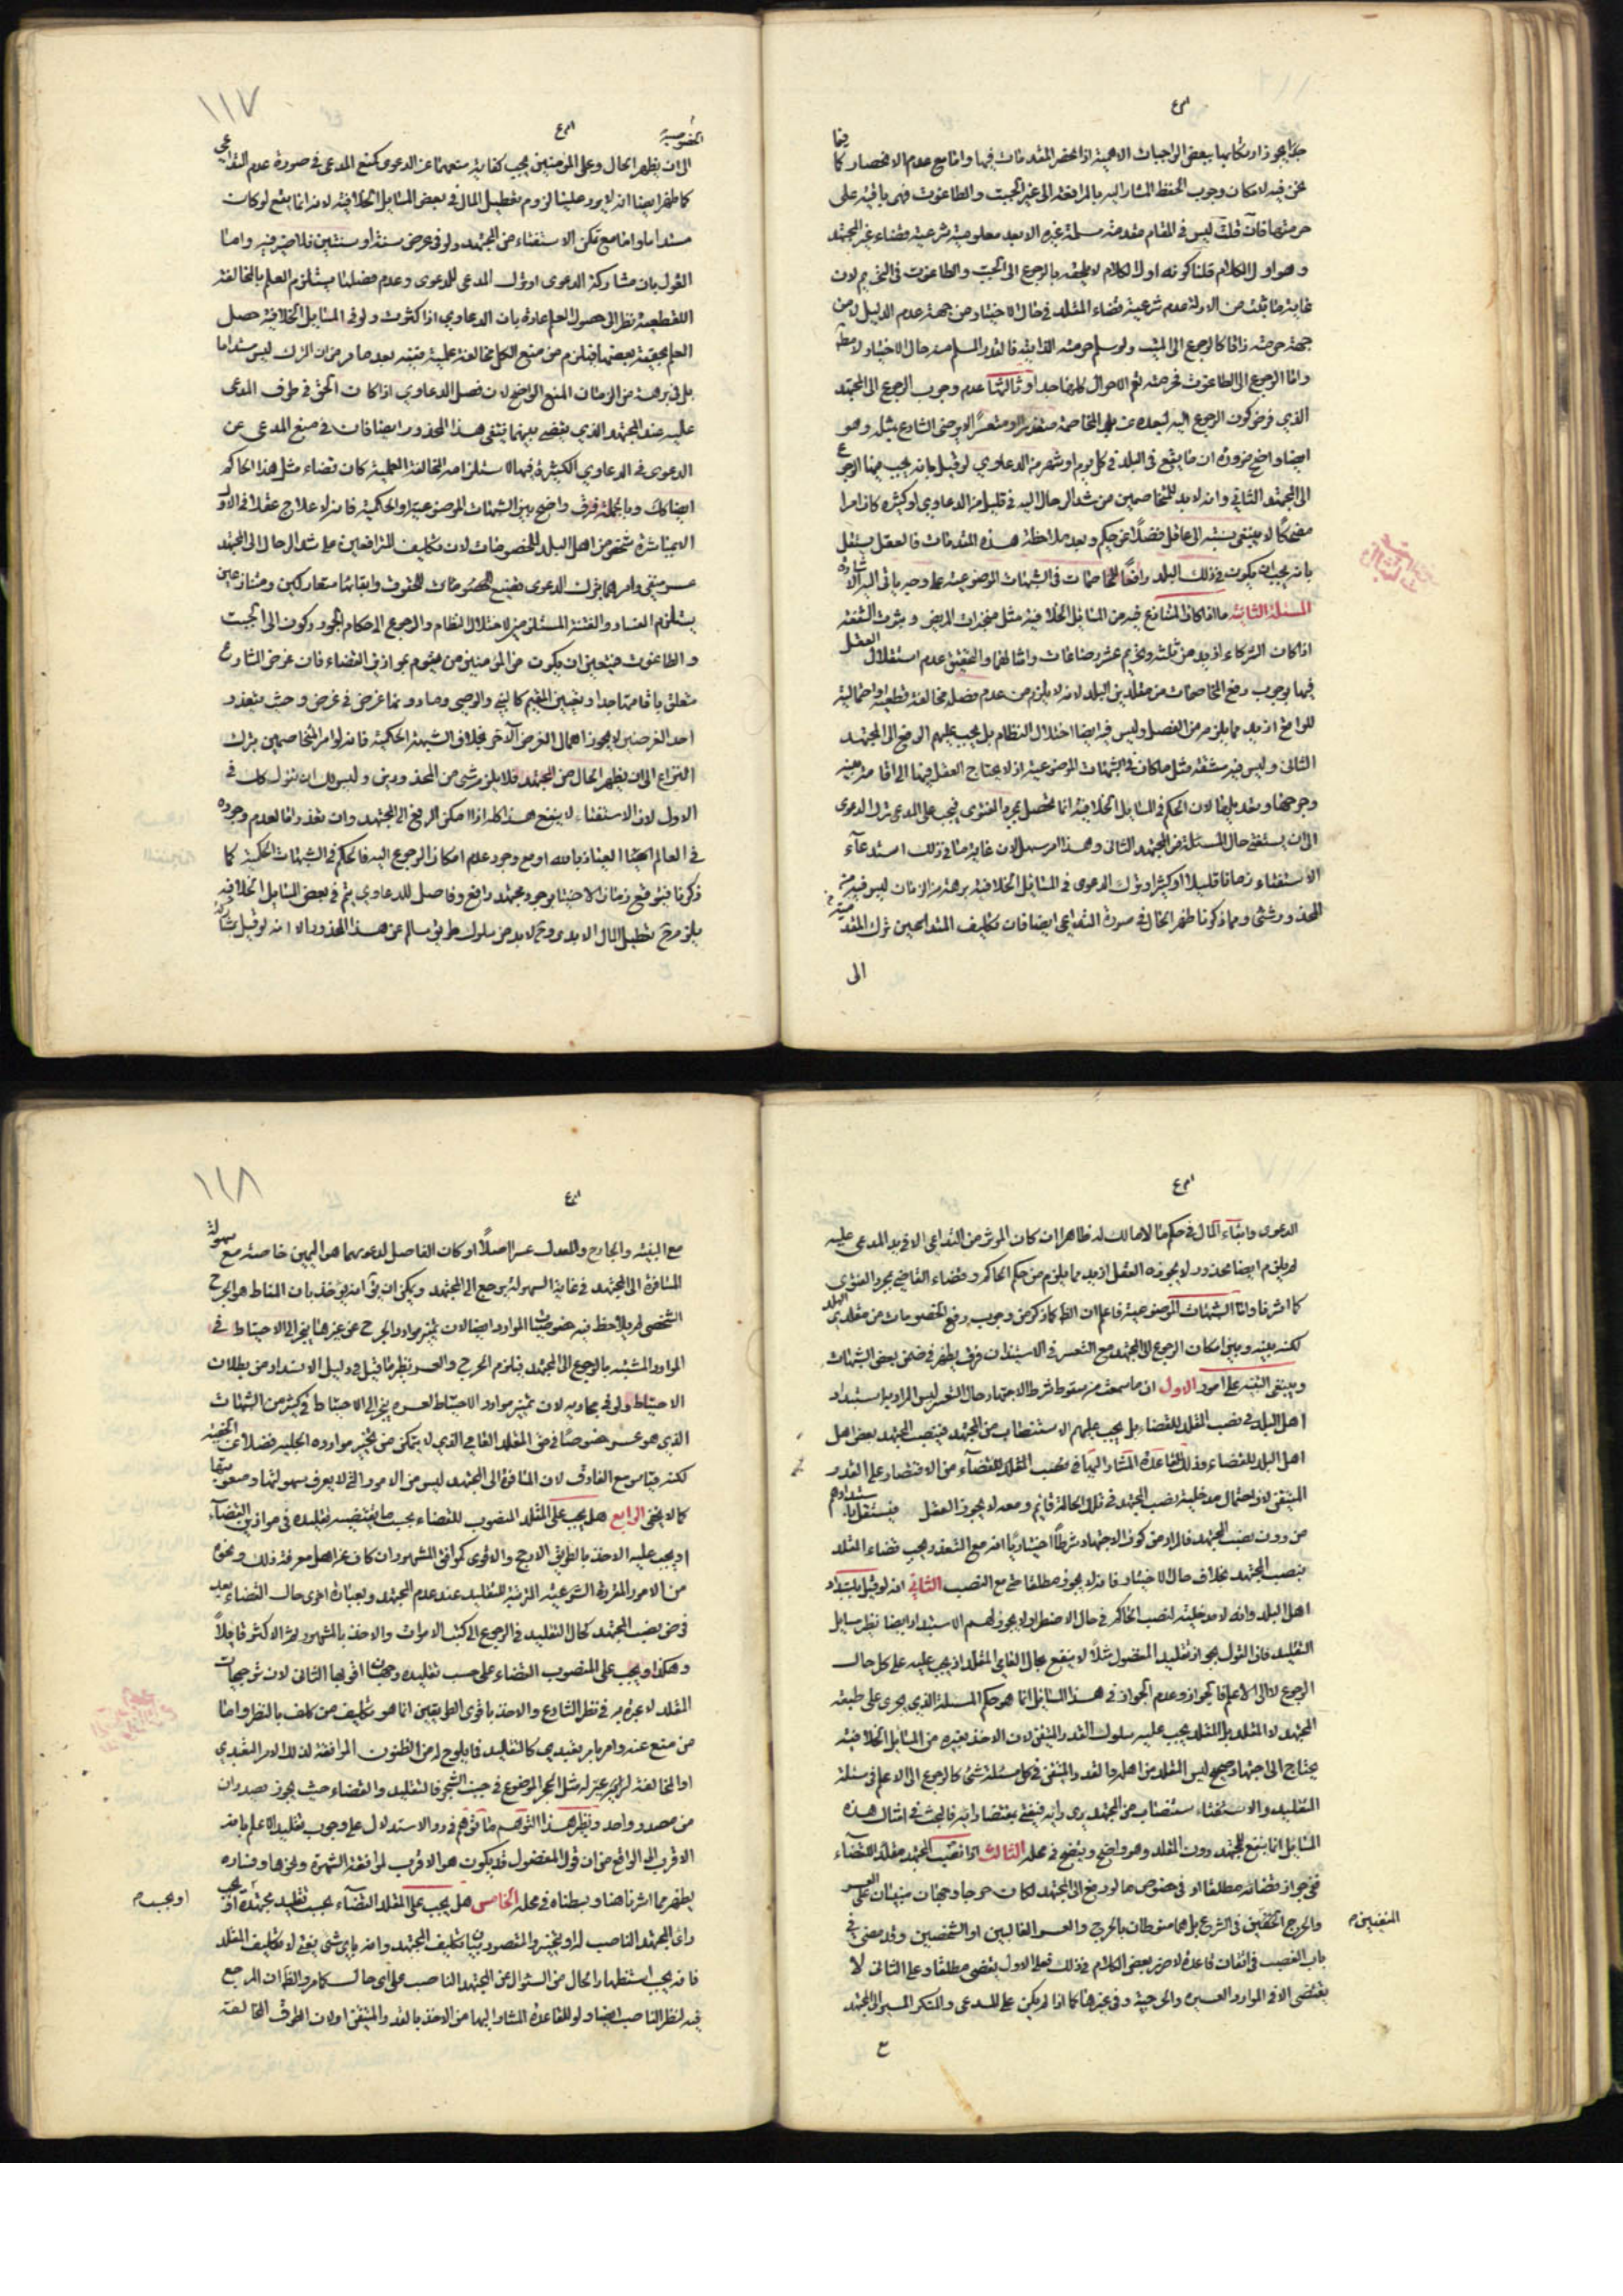 جدا يجوز ارتكابها ببعض الواجبات الاهمية اذا انحصر المقدمات فيها واما مع عدم الانحصار كما فيما
نحن فيه لامكان وجوب الحفظ المشار اليه بالمرافعة الى غير الجبت والطاغوت فهى باقية على
حرمتها فان قلت ليس فى المقام مقدمة مسلمة غيره الا بعد معلومية شرعية قضاء غير المجتهد
وهو اول الكلام قلنا كونه اول الكلام لا يلحقه بالرجوع الى الجبت والطاغوت فى التحريم لان
غاية ما ثبت من الادلة عدم شرعية قضاء المقلد فى حال الاختيار من جهة عدم الدليل لا من
جهة حرمته ذاتا كالرجوع الى ولو سلم حرمته الذاتية فالقدر المسلم منه حال الاختيار لا مطلقا
واما الرجوع الى الطاغوت فحرمته تعم الاحوال كلها جدا وثالثها عدم وجوب الرجوع الى المجتهد
الذي فرض كون الرجوع اليه لبعده عن بلد المخاصمة متعذرا او متعسرا لا يرضى الشارع بمثله وهو
ايضا واضح ضرورة ان ما يقع فى البلد فى كل يوم او شهر من الدعاوي لو قيل بانه يجب فيها الرجوع
الى المجتهد الثانى وانه لابد للمتخاصمين من شد الرحال اليه فى قليل من الدعاوي او كثيره كان امرا
مضحكا لا ينبغى نسبته الى عاقل فضلا عن حكيم وبعد ملاحظة هذه المقدمات فالعقل يستقل
بانه يجب ان يكون فى ذلك البلد رافعا للمخاصمات فى الشبهات الموضوعية على وجه ياتى اليه الاشارة
المسئلة الثانية ما اذا كان التنازع فيه من المسائل الخلافية مثل منجزات المريض وثبوت الشفعة
اذا كان الشركاء ازيد من ثلثة وتحريم عشر رضاعات وامثالها والتحقيق عدم استقلال العقل
فيها بوجوب رفع المخاصمات من مقلدين البلد لانه لا يلزم من عدم فصله مخالفة قطعية او احتمالية
للواقع ازيد مما يلزم من الفصل وليس فيه ايضا اختلال النظام بل يجب عليهم الرفع الى المجتهد
الثانى وليس فيه مشقة مثل ما كان فى الشبهات الموضوعية اذ لا يحتاج الفصل فيها الى اقامة بينة
وجرحها وتعديلها لان الحكم فى المسائل الخلافية انما يحصل بمجرد الفتوى فيجب على المدعى ترك الدعوى
الى ان يستفتى حال المسئلة من المجتهد الثانى وهذا امر سهل لان غاية ما فى ذلك استدعاء
الاستفتاء زمانا قليلا او كثيرا وترك الدعوى فى المسائل الخلافية برهة من الزمان ليس فيه
المحذور وشئ ومما ذكرنا ظهر الحال فى صورة التداعى ايضا فان تكليف المتداعيين ترك
الى
١١٧
الخصومة
الى ان يظهر الحال وعلى المؤمنين يجب كفاية منعهما عن الدعوى كمنع المدعى فى صورة عدم التداعى
كما ظهر ايضا انه لا يرد علينا لزوم تعطيل المال فى بعض المسائل الخلافية لانه انما يقع لو كان
مستداما واما مع تمكن الاستفتاء من المجتهد ولو فى عرض سنة او سنتين فلا ضير فيه واما
القول بان مشاركة الدعوى او ترك المدعى للدعوى وعدم فصلها يستلزم العلم بالمخالفة
القطعية نظرا الى حصول العلم عادة بان الدعاوي اذا كثرت ولو فى المسائل الخلافية حصل
العلم بحقية بعضها فيلزم من منع الكل مخالفة علمية فيه بعد ما مر من ان الترك ليس مستداما
بل فى برهة من الزمان المنع الواضح لان فصل الدعاوي اذا كان الحق فى طرف المدعى
عليه عند المجتهد الذي يقضى بينهما ينفى هذا المحذور ايضا فان فى منع المدعى عن
الدعوى فى الدعاوي الكثيرة فيها لا استلزامه المخالفة العملية كان قضاء مثل هذا الحاكم
ايضا كك وبالجملة فرق واضح بين الشبهات الموضوعية والحكمية فانه لا علاج عقلا فى الاولى
الا مباشرة شخص من اهل البلد للخصومات لان تكليف المترافعين على شد الرحال الى المجتهد
عسر منفى وامرهما بترك الدعوى تضييع الحقوق وابقائهما متعاركين ومتنازعين
يستلزم الفساد والفتنة المستلزمين لاختلال النظام والرجوع الى حكام الجور ركون الى الجبت
والطاغوت فيتعين ان يكون من المؤمنين من يقوم بموازين القضاء فان غرض الشارع
متعلق باقامتها جدا وتعيين المقيم كالنبى والوصى وما دونهما غرض فى غرض وحيث يتعذر
احد الغرضين لا يجوز اهمال الغرض الآخر بخلاف الشبهة الحكمية فانه لو امر المتخاصمين بترك
النزاع الى ان يظهر الحال من المجتهد فلا يلزم شئ من المحذورين وليس لك ان تقول كك فى
الاول لان الاستفتاء لا ينفع هذا كله اذا امكن الرفع الى المجتهد وان تعذر اما لعدم وجوده
فى العالم العياذ بالله او مع وجود عدم امكان الرجوع اليه فالحكم فى الشبهات الحكمية كما
ذكرنا فيتوقع زمان الاختيار بوجود مجتهد رافع وفاصل للدعاوي نعم فى بعض المسائل الخلافية
يلزم منع تعطيل المال الابدى ولابد من سلوك طريق سالم عن هذا المحذور الا انه لو قيل
الدعوى وابقاء المال فى حكم ما لا مالك له ظاهرا ان كان المورث من التداعى او فى يد المدعى عليه
لم يلزم ايضا محذور لا يجوزه العقل ازيد مما يلزم من حكم الحاكم وقضاء القاضى بمجرد الفتوى
كما اشرنا واما الشبهات الموضوعية فاعلم ان الظ كما ذكر من وجوب رفع الخصومات من مقلدى البلد
لكنه بينه وبين امكان الرجوع الى المجتهد مع التعسر فى الاستيذان فرق يظهر فى ضمن بعض الشبهات
وينبغى التنبيه على امور الاول ان ما سمعت من سقوط شرط الاجتهاد حال التعسر ليس المراد به استبداد
اهل البلد فى نصب المقلد للقضاء بل يجب عليهم الاستنصاب من المجتهد فينصب المجتهد بعض اهل
اهل البلد للقضاء وذلك للقاعدة المشار اليها فى نصب المقلد للقضاء من الاقتصار على القدر
المتيقن لان احتمال مدخلية نصب المجتهد فى تلك الحالة قائم ومعه لا يجوز العقل فيستقل
من دون نصب المجتهد فالمراد من كون الاجتهاد شرطا اختياريا انه مع التعذر يجب قضاء المقلد
بنصب المجتهد بخلاف حال الاختيار فانه لا يجوز مطلقا حتى مع النصب الثانى انه لو قيل باستبداد
اهل البلد وانه لا مدخلية لنصب الحاكم فى حال الاضطرار لا يجوز لهم الاستبداد ايضا نظير مسايل
التقليد فان القول بجواز تقليد المفضول مثلا لا ينفع بحال العامى المقلد اذ يجب عليه على كل حال
الرجوع الى الاعلم فالجواز وعدم الجواز فى هذا المسايل انما هو حكم المسئلة الذي يجرى على طبقه
المجتهد لا المقلد بل المقلد يجب عليه سلوك القدر المتيقن لان الاخذ بغيره من المسايل الخلافية
يحتاج الى اجتهاد صحيح ليس المقلد من اهله والقدر المتيقن فى كل مسئلة شئ كالرجوع الى الاعلم فى مسئلة
التقليد والاستفتاء استنصاب من المجتهد يرى رايه فيفتى بمقتضى رايه فالبحث فى امثال هذه
المسايل انما ينفع للمجتهد دون المقلد وهو واضح ويتضح فى محله الثالث اذا نصب المجتهد مقلدا للقضاء
ففى جواز قضائه مطلقا او فى خصوص ما لو رفع الى المجتهد لكان حرجا وجهان مبنيان على العسر
والحرج المنفيين فى الشرع بل هما منوطان بالحرج والعسر الغالبيين او الشخصيين وقد مضى فى
باب الغصب فى اثبات قاعدة لا ضرر بعض الكلام فى ذلك فعلى الاول يقضى مطلقا وعلى الثانى لا
يقتضى الا فى الموارد العسرة والحرجية وفى غيرها كما اذا لم يكن على المدعى والمنكر المسير الى المجتهد
المنفيين
١١٨
مع البينة والجارح والمعدل عسرا اصلا او كان الفاصل لدعويهما هو اليمين خاصة مع سهولة
المسافرة الى المجتهد فى غاية السهولة يرجع الى المجتهد ويمكن ان يق انه يؤخذ بان المناط هو الحرج
الشخصى لم يلاحظ فيه خصوصيات الموارد ايضا لان تميز موارد الحرج عن غيرها ينجر الى الاحتياط فى
الموارد المشتبهة بالرجوع الى المجتهد فيلزم الحرج والعسر نظير ما قيل فى دليل الانسداد من بطلان
الاحتياط ولو فى مجاريه لان تميز موارد الاحتياط العسرة ينجر الى الاحتياط فى كثير من الشبهات
الذي هو عسر خصوصا فى حق المقلد العامى الذي لا يتمكن من تميز موارده الجلية فضلا عن الخفية
لكنه قياس مع الفارق لان المسافرة الى المجتهد ليس من الامور التى لا يعرف سهولتها وصعوبتها
كما لا يخفى الرابع هل يجب على المقلد المنصوب للقضاء بحسب ما يقتضيه تقليده فى موازين القضاء
او يجب عليه الاخذ بالطريق الارجح والاقوى كموافق المشهور ان كان من اهل معرفة ذلك ونحوه
من الامور المقررة الشرعية المرتبة للتقليد عند عدم المجتهد وبعبارة اخرى حال القضاء بعد
فرض نصب المجتهد كحال التقليد فى الرجوع الى كتب الاموات والاخذ بالمشهور ثم الاكثر قائلا
وهكذا او يجب على المنصوب القضاء على حسب تقليده وجهان اقويها الثانى لان ترجيحات
المقلد لا عبرة به فى نظر الشارع والاخذ باقوى الطريقين انما هو تكليف من كلف بالنظر واما
من منع عنه وامر بامر تعبدى كالتقليد فما يلوح له من الظنون الموافقة لذلك الامر التعبدي
او المخالفة له بمنزلة مثل الحجر الموضوع فى جنب الشجر فالتقليد والقضاء حيث يجوز يصدران
من مصدر واحد ونظير هذا التوهم ما توهم فى رد الاستدلال على وجوب تقليد الاعلم بانه
الاقرب الى الواقع من ان قول المفضول قد يكون هو الاقرب لموافقة الشهرة ونحوها وفساده
يظهر مما اشرنا هنا وبسطناه فى محله الخامس هل يجب على المقلد القضاء بحسب تقليد مجتهده او يجب
راى المجتهد الناصب له او يتخير والمقصود بيان تكليف المجتهد وانه باى شئ يفتى لا تكليف المقلد
فانه يجب استظهار الحال من السؤال عن المجتهد الناصب على اى حال كما مر والظ ان المرجع
فيه لنظر الناصب ايضا ولو للقاعدة المشار اليها من الاخذ بالقدر المتيقن او لان الطرق المخالفة
او بحسب